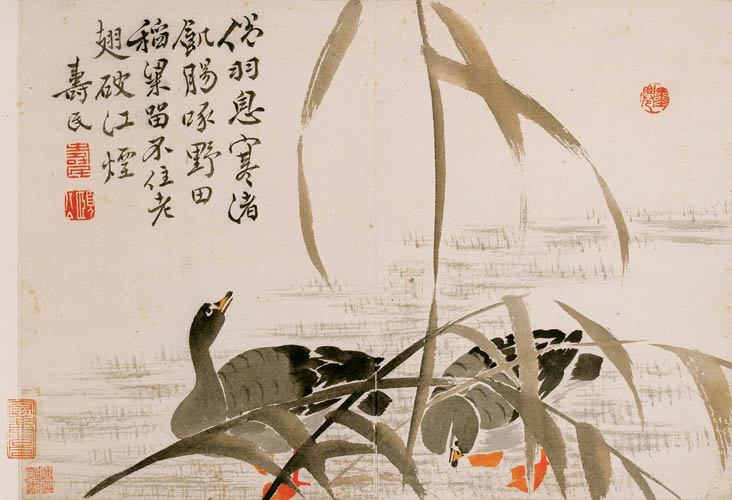 倦羽息寒渚
飢腸啄野田
稻粱留不住老
翅破江煙
壽民